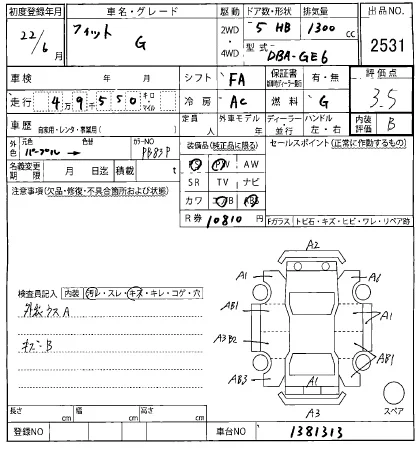 初度登録年月 車名・グレード 駆動 ドア数・形状 排気量 出品NO
22/6月 フィット G 2WD 4WD 5 HB 1300 cc 2531
型式 DBA-GE6
車検 年 月 シフト FA 保証書 有・無 評価点
走行 4万9千550 キロ マイル 冷房 AC 燃料 G 3.5
車歴 自家用・レンタ・事業用( ) 定員 人 外車モデル 年 ディーラー 並行 ハンドル 左・右 内装評価 B
外色 元色 パープル → 色替 カラーNO PB83P
装備品(純正品に限る) セールスポイント(正常に作動するもの)
名義変更期限 月 日迄 積載 t
PS PW AW
SR TV ナビ
カワ エアB
R券 10810 円
注意事項(欠品・修復・不具合箇所および状態)
Fガラス トビ石・キズ・ヒビ・ワレ・リペア跡
検査員記入 内装 汚レ・スレ・キズ・キレ・コゲ・穴
A
キズB
A2
A1 A6
AB1 A1
A3B2
AB3 A1 AB1
A3
スペア
長さ cm 幅 cm 高さ cm
登録NO 車台NO 1381313